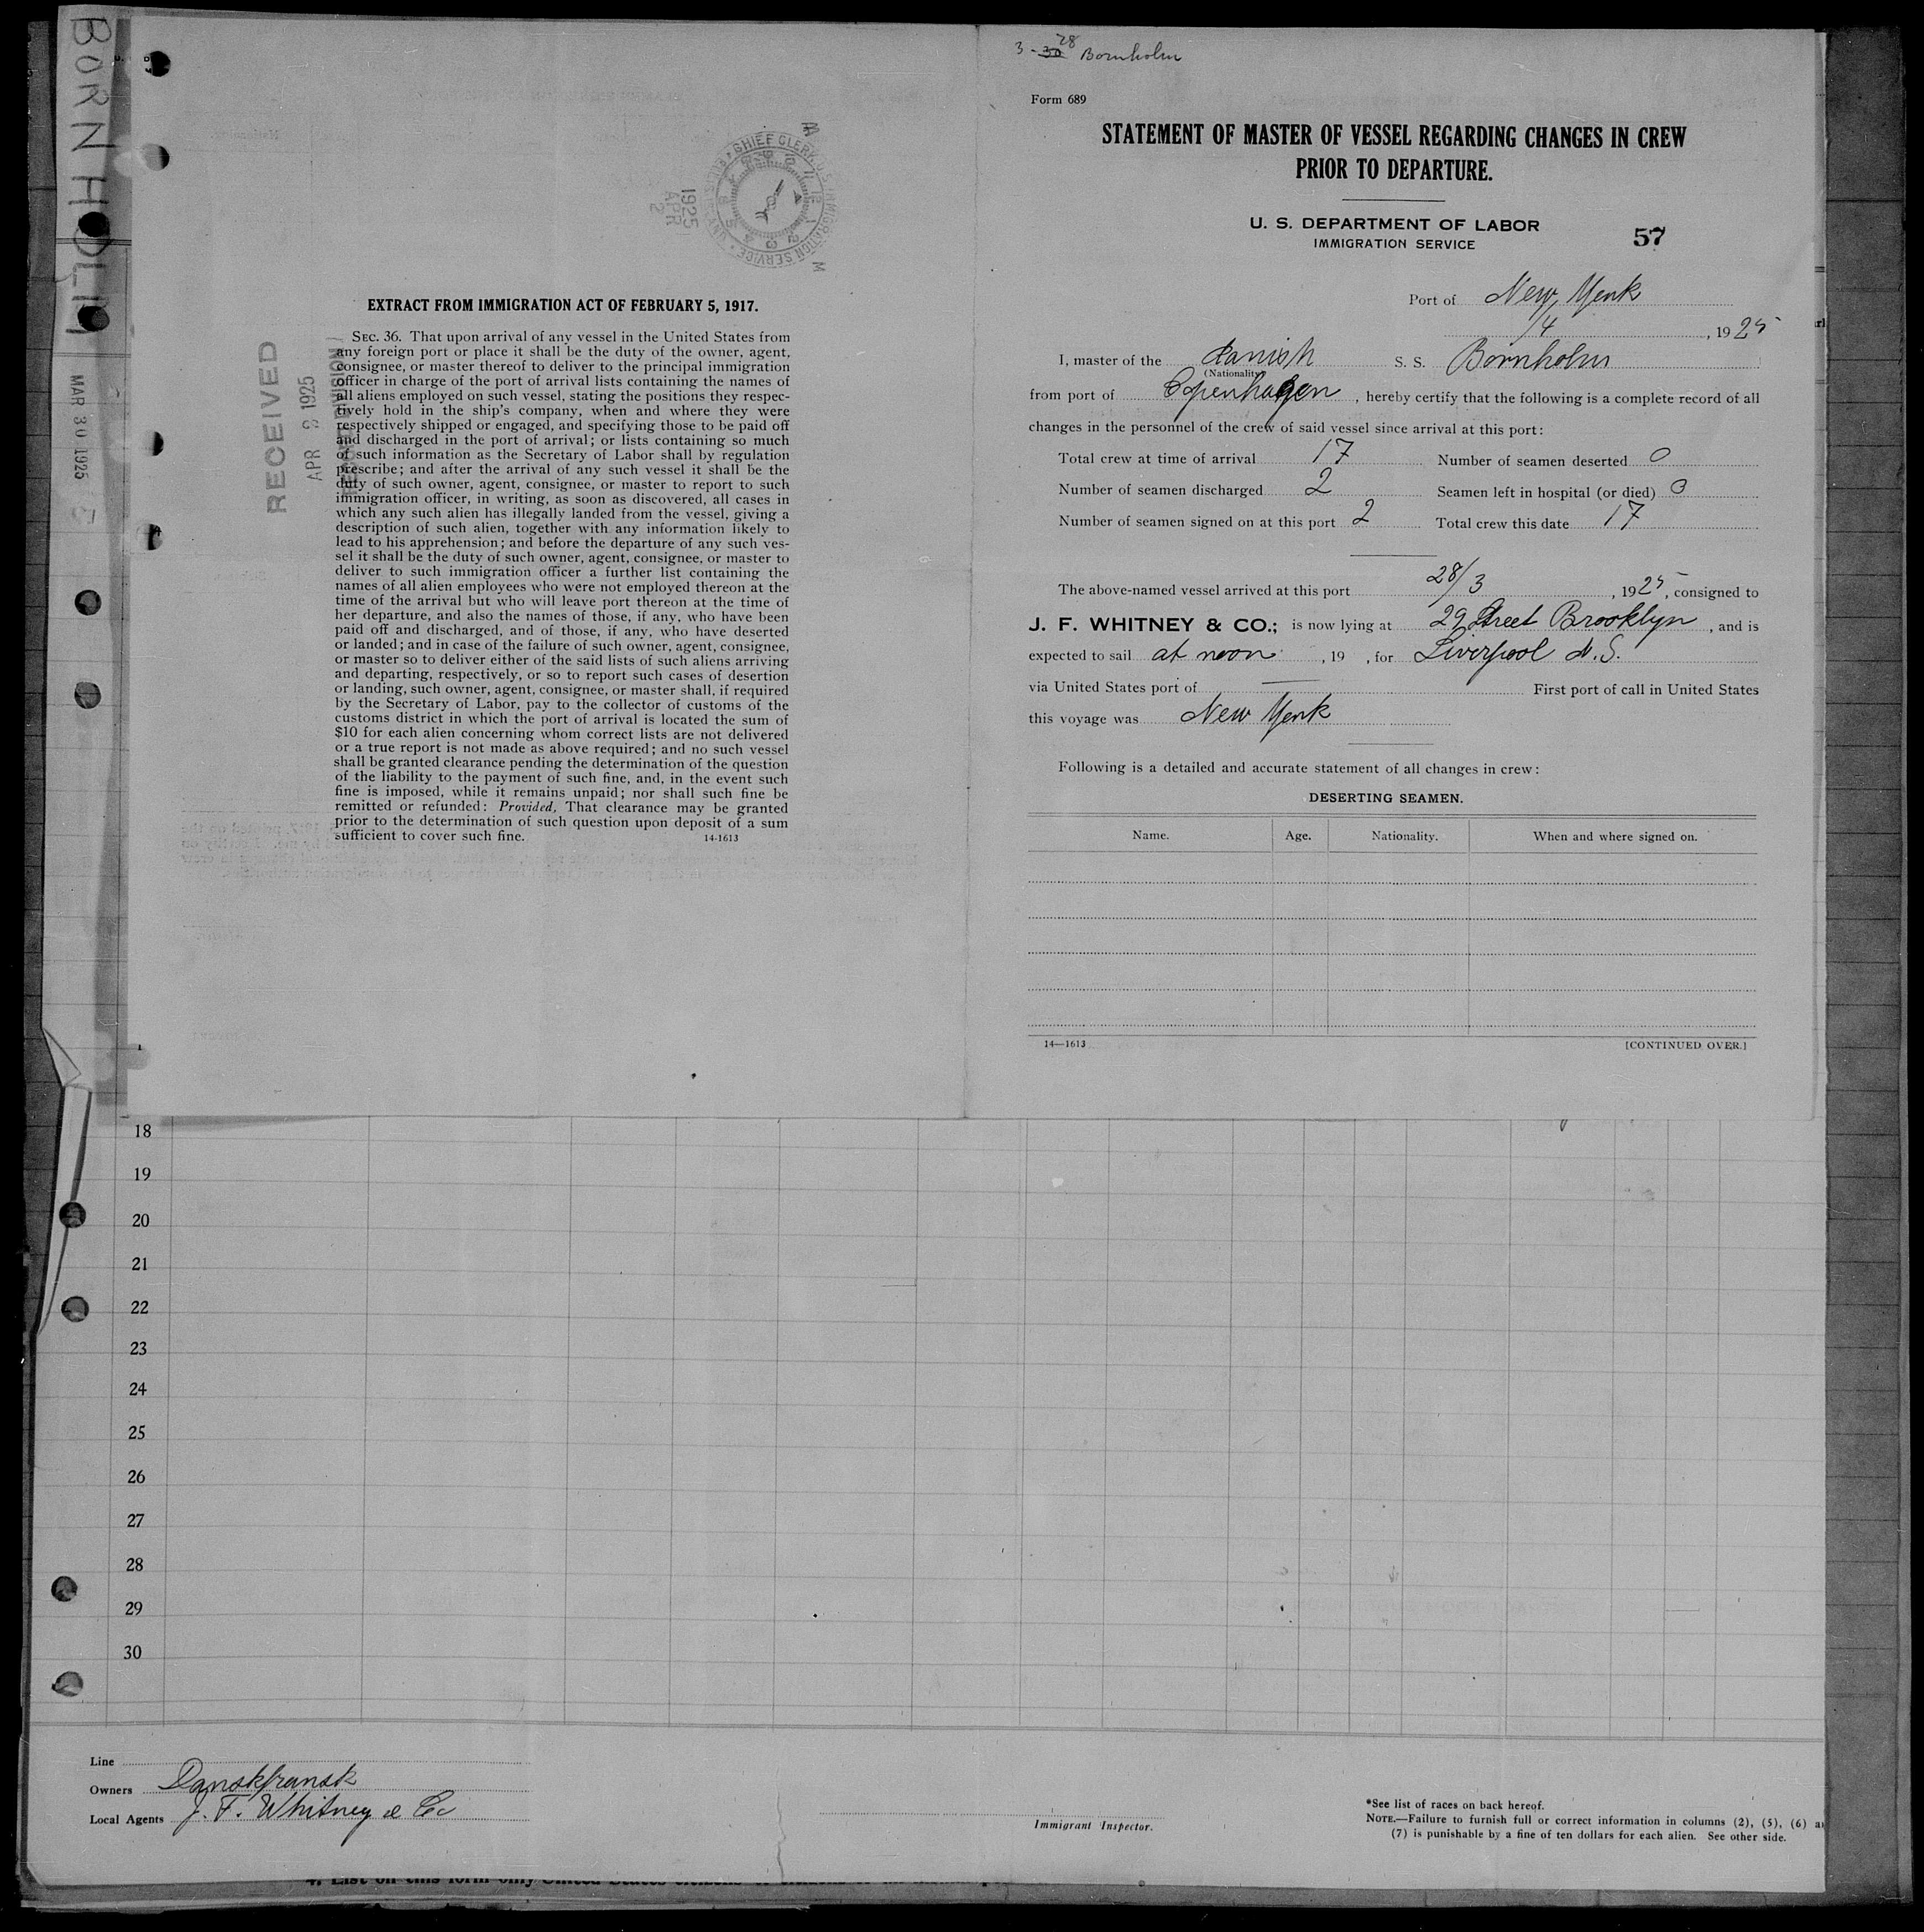 BORNHOLM
MAR 30 1925
CHIEF CLERK U.S. IMMIGRATION SERVICE
1925
APR
2
RECEIVED
APR 3 1925
EXTRACT FROM IMMIGRATION ACT OF FEBRUARY 5, 1917.
SEC. 36. That upon arrival of any vessel in the United States from
any foreign port or place it shall be the duty of the owner, agent,
consignee, or master thereof to deliver to the principal immigration
officer in charge of the port of arrival lists containing the names of
all aliens employed on such vessel, stating the positions they respec-
tively hold in the ship's company, when and where they were
respectively shipped or engaged, and specifying those to be paid off
and discharged in the port of arrival; or lists containing so much
of such information as the Secretary of Labor shall by regulation
prescribe; and after the arrival of any such vessel it shall be the
duty of such owner, agent, consignee, or master to report to such
immigration officer, in writing, as soon as discovered, all cases in
which any such alien has illegally landed from the vessel, giving a
description of such alien, together with any information likely to
lead to his apprehension; and before the departure of any such ves-
sel it shall be the duty of such owner, agent, consignee, or master to
deliver to such immigration officer a further list containing the
names of all alien employees who were not employed thereon at the
time of the arrival but who will leave port thereon at the time of
her departure, and also the names of those, if any, who have been
paid off and discharged, and of those, if any, who have deserted
or landed; and in case of the failure of such owner, agent, consignee,
or master so to deliver either of the said lists of such aliens arriving
and departing, respectively, or so to report such cases of desertion
or landing, such owner, agent, consignee, or master shall, if required
by the Secretary of Labor, pay to the collector of customs of the
customs district in which the port of arrival is located the sum of
$10 for each alien concerning whom correct lists are not delivered
or a true report is not made as above required; and no such vessel
shall be granted clearance pending the determination of the question
of the liability to the payment of such fine, and, in the event such
fine is imposed, while it remains unpaid; nor shall such fine be
remitted or refunded: Provided, That clearance may be granted
prior to the determination of such question upon deposit of a sum
sufficient to cover such fine. 14-1613
3-30 28 Bornholm
Form 689
STATEMENT OF MASTER OF VESSEL REGARDING CHANGES IN CREW
PRIOR TO DEPARTURE.
U. S. DEPARTMENT OF LABOR
IMMIGRATION SERVICE
57
Port of New York
1/4, 1925
I, master of the danish S. S. Bornholm
(Nationality)
from port of Copenhagen, hereby certify that the following is a complete record of all
changes in the personnel of the crew of said vessel since arrival at this port:
Total crew at time of arrival 17 Number of seamen deserted 0
Number of seamen discharged 2 Seamen left in hospital (or died) 0
Number of seamen signed on at this port 2 Total crew this date 17
The above-named vessel arrived at this port 28/3, 1925, consigned to
J. F. WHITNEY & CO.; is now lying at 29 Street Brooklyn, and is
expected to sail at noon, 19 , for Liverpool N.S.
via United States port of — First port of call in United States
this voyage was New York
Following is a detailed and accurate statement of all changes in crew:
DESERTING SEAMEN.
Name. Age. Nationality. When and where signed on.
14—1613 [CONTINUED OVER.]
18
19
20
21
22
23
24
25
26
27
28
29
30
Line
Owners Danskfransk
Local Agents J. F. Whitney & Co
Immigrant Inspector.
*See list of races on back hereof.
NOTE.—Failure to furnish full or correct information in columns (2), (5), (6) a
(7) is punishable by a fine of ten dollars for each alien. See other side.